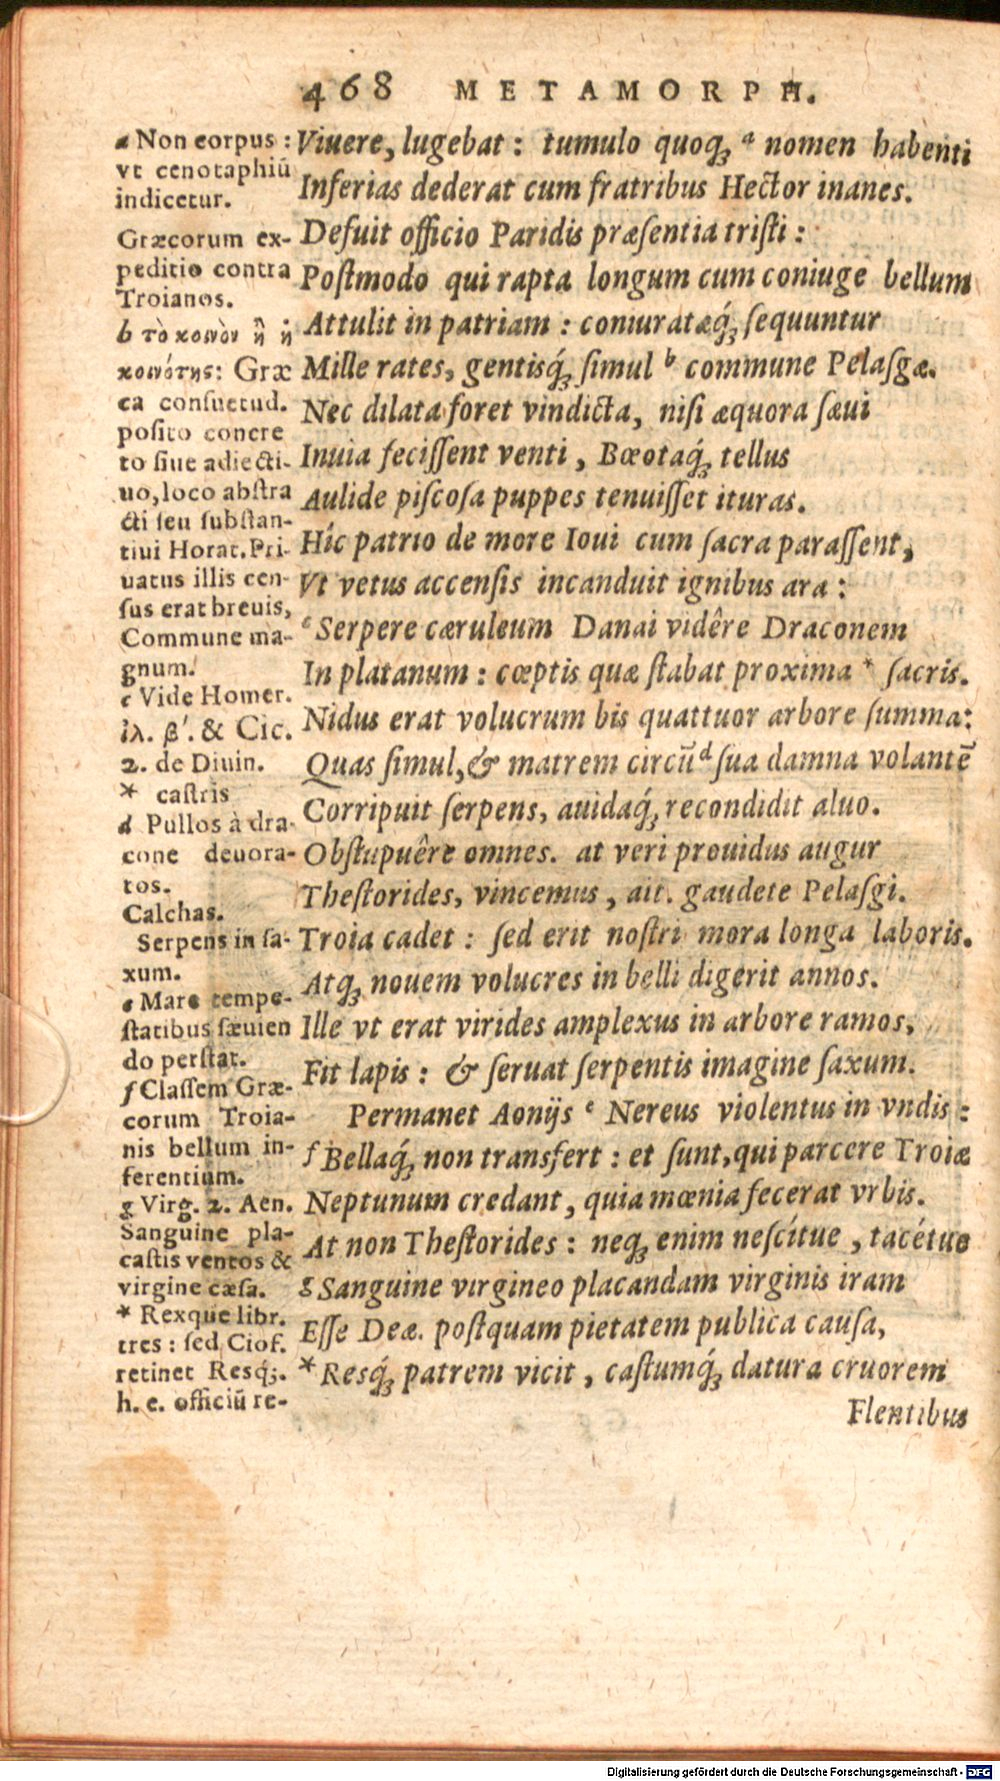 468 METAMORPH.
a Non corpus:
vt cenotaphiũ
indicetur.
Græcorum ex-
peditio contra
Troianos.
b τὸ κοινὸν ἢ ἡ
κοινότης: Græ
ca consuetud.
posito concre
to siue adiecti-
uo, loco abstra
cti seu substan-
tiui Horat. Pri-
uatus illis cen-
sus erat breuis,
Commune ma-
gnum.
c Vide Homer.
ἰλ. β′. & Cic.
2. de Diuin.
* castris
d Pullos à dra-
cone deuora-
tos.
Calchas.
Serpens in sa-
xum.
e Mare tempe-
statibus sæuien
do perstat.
f Classem Græ-
corum Troia-
nis bellum in-
ferentium.
g Virg. 2. Aen.
Sanguine pla-
castis ventos &
virgine cæsa.
* Rexque libr.
tres: sed Ciof.
retinet Resq́;.
h. e. officiũ re-
Viuere, lugebat: tumulo quoq; a nomen habenti
Inferias dederat cum fratribus Hector inanes.
Defuit officio Paridis præsentia tristi:
Postmodo qui rapta longum cum coniuge bellum
Attulit in patriam: coniuratæq́; sequuntur
Mille rates, gentisq́; simul b commune Pelasgæ.
Nec dilata foret vindicta, nisi æquora sæui
Inuia fecissent venti, Bœotaq́; tellus
Aulide piscosa puppes tenuisset ituras.
Hîc patrio de more Ioui cum sacra parassent,
Vt vetus accensis incanduit ignibus ara:
c Serpere cæruleum Danai vidêre Draconem
In platanum: cœptis quæ stabat proxima * sacris.
Nidus erat volucrum bis quattuor arbore summa:
Quas simul, & matrem circũ d sua damna volantẽ
Corripuit serpens, auidaq́; recondidit aluo.
Obstupuêre omnes. at veri prouidus augur
Thestorides, vincemus, ait. gaudete Pelasgi.
Troia cadet: sed erit nostri mora longa laboris.
Atq; nouem volucres in belli digerit annos.
Ille vt erat virides amplexus in arbore ramos,
Fit lapis: & seruat serpentis imagine saxum.
Permanet Aonijs e Nereus violentus in vndis:
f Bellaq́; non transfert: et sunt, qui parcere Troiæ
Neptunum credant, quia mœnia fecerat vrbis.
At non Thestorides: neq; enim nescítue, tacétue
g Sanguine virgineo placandam virginis iram
Esse Deæ. postquam pietatem publica causa,
* Resq́; patrem vicit, castumq́; datura cruorem
Flentibus
Digitalisierung gefördert durch die Deutsche Forschungsgemeinschaft - DFG